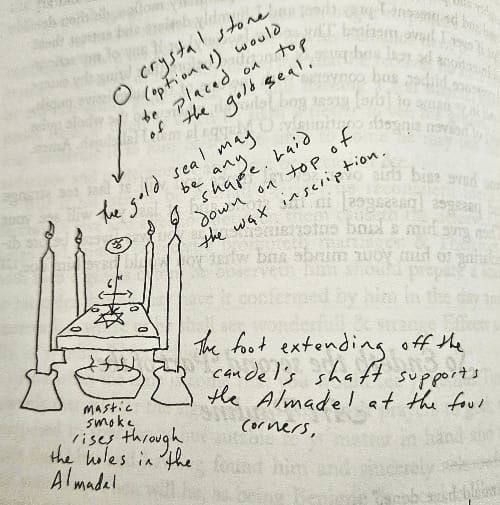 crystal stone
(optional) would
be placed on top
of the gold seal.
the gold seal may
be any
shape. Laid
down on top of
the wax inscription.
6"
The foot extending off the
candel's shaft supports
the Almadel at the four
corners.
mastic
smoke
rises through
the holes in the
Almadel